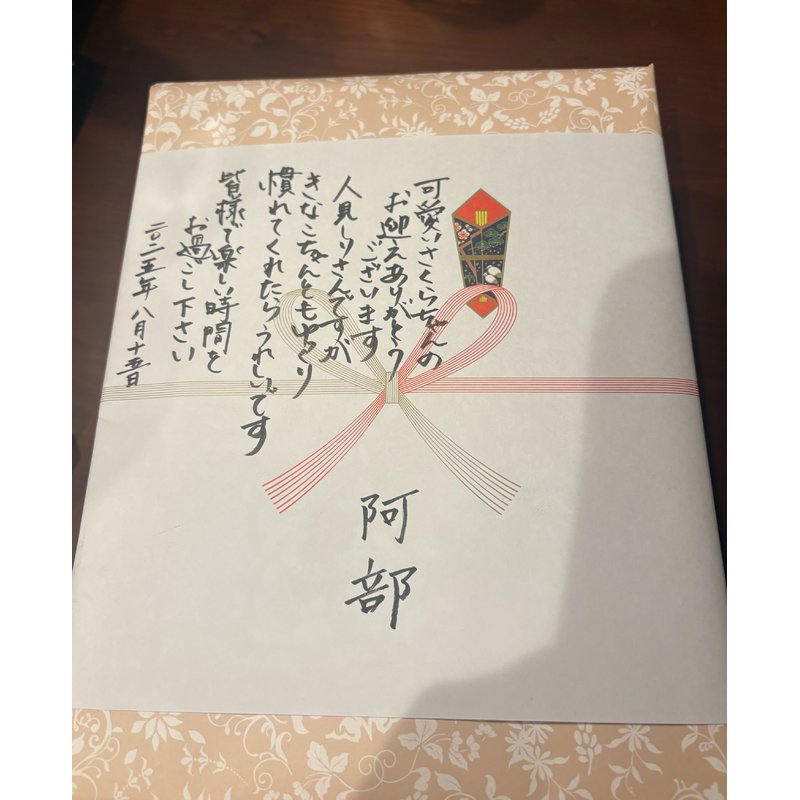 可愛いさくらちゃんの
お迎えありがとう
ございます
人見しりさんですが
きなこちゃんともゆっくり
慣れてくれたらうれしいです
皆様で楽しい時間を
お過ごし下さい
二〇二五年八月十五日
阿部